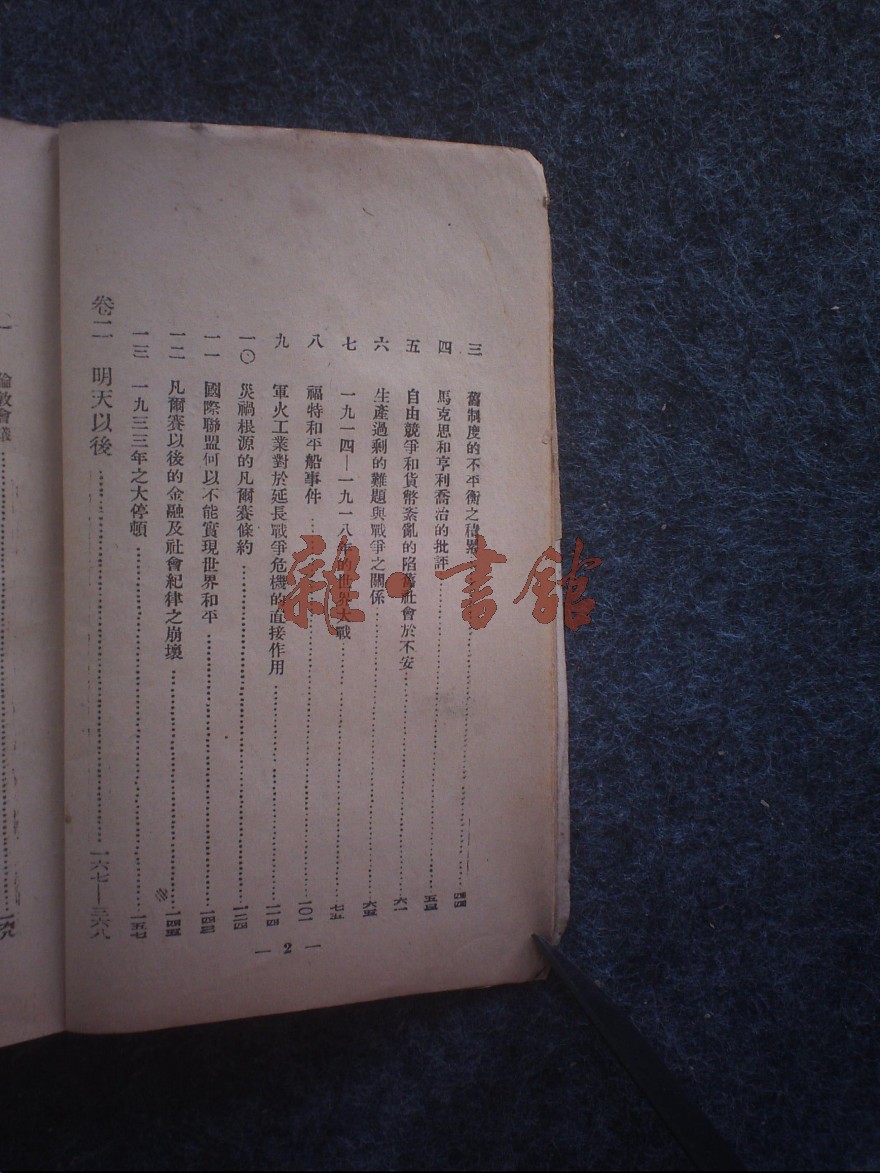 三 舊制度的不平衡之積累
四 馬克思和亨利喬治的批評
五 自由競爭和貨幣紊亂的陷舊社會於不安 六一
六 生產過剩的難題與戰爭之關係 六五
七 一九一四—一九一八年的世界大戰 七五
八 福特和平船事件 一〇一
九 軍火工業對於延長戰爭危機的直接作用
一〇 災禍根源的凡爾賽條約
一一 國際聯盟何以不能實現世界和平
一二 凡爾賽以後的金融及社會紀律之崩壞
一三 一九三三年之大停頓 一五七
卷二 明天以後 一六七—三六八
— 2 —
一 倫敦會議
雜·書館